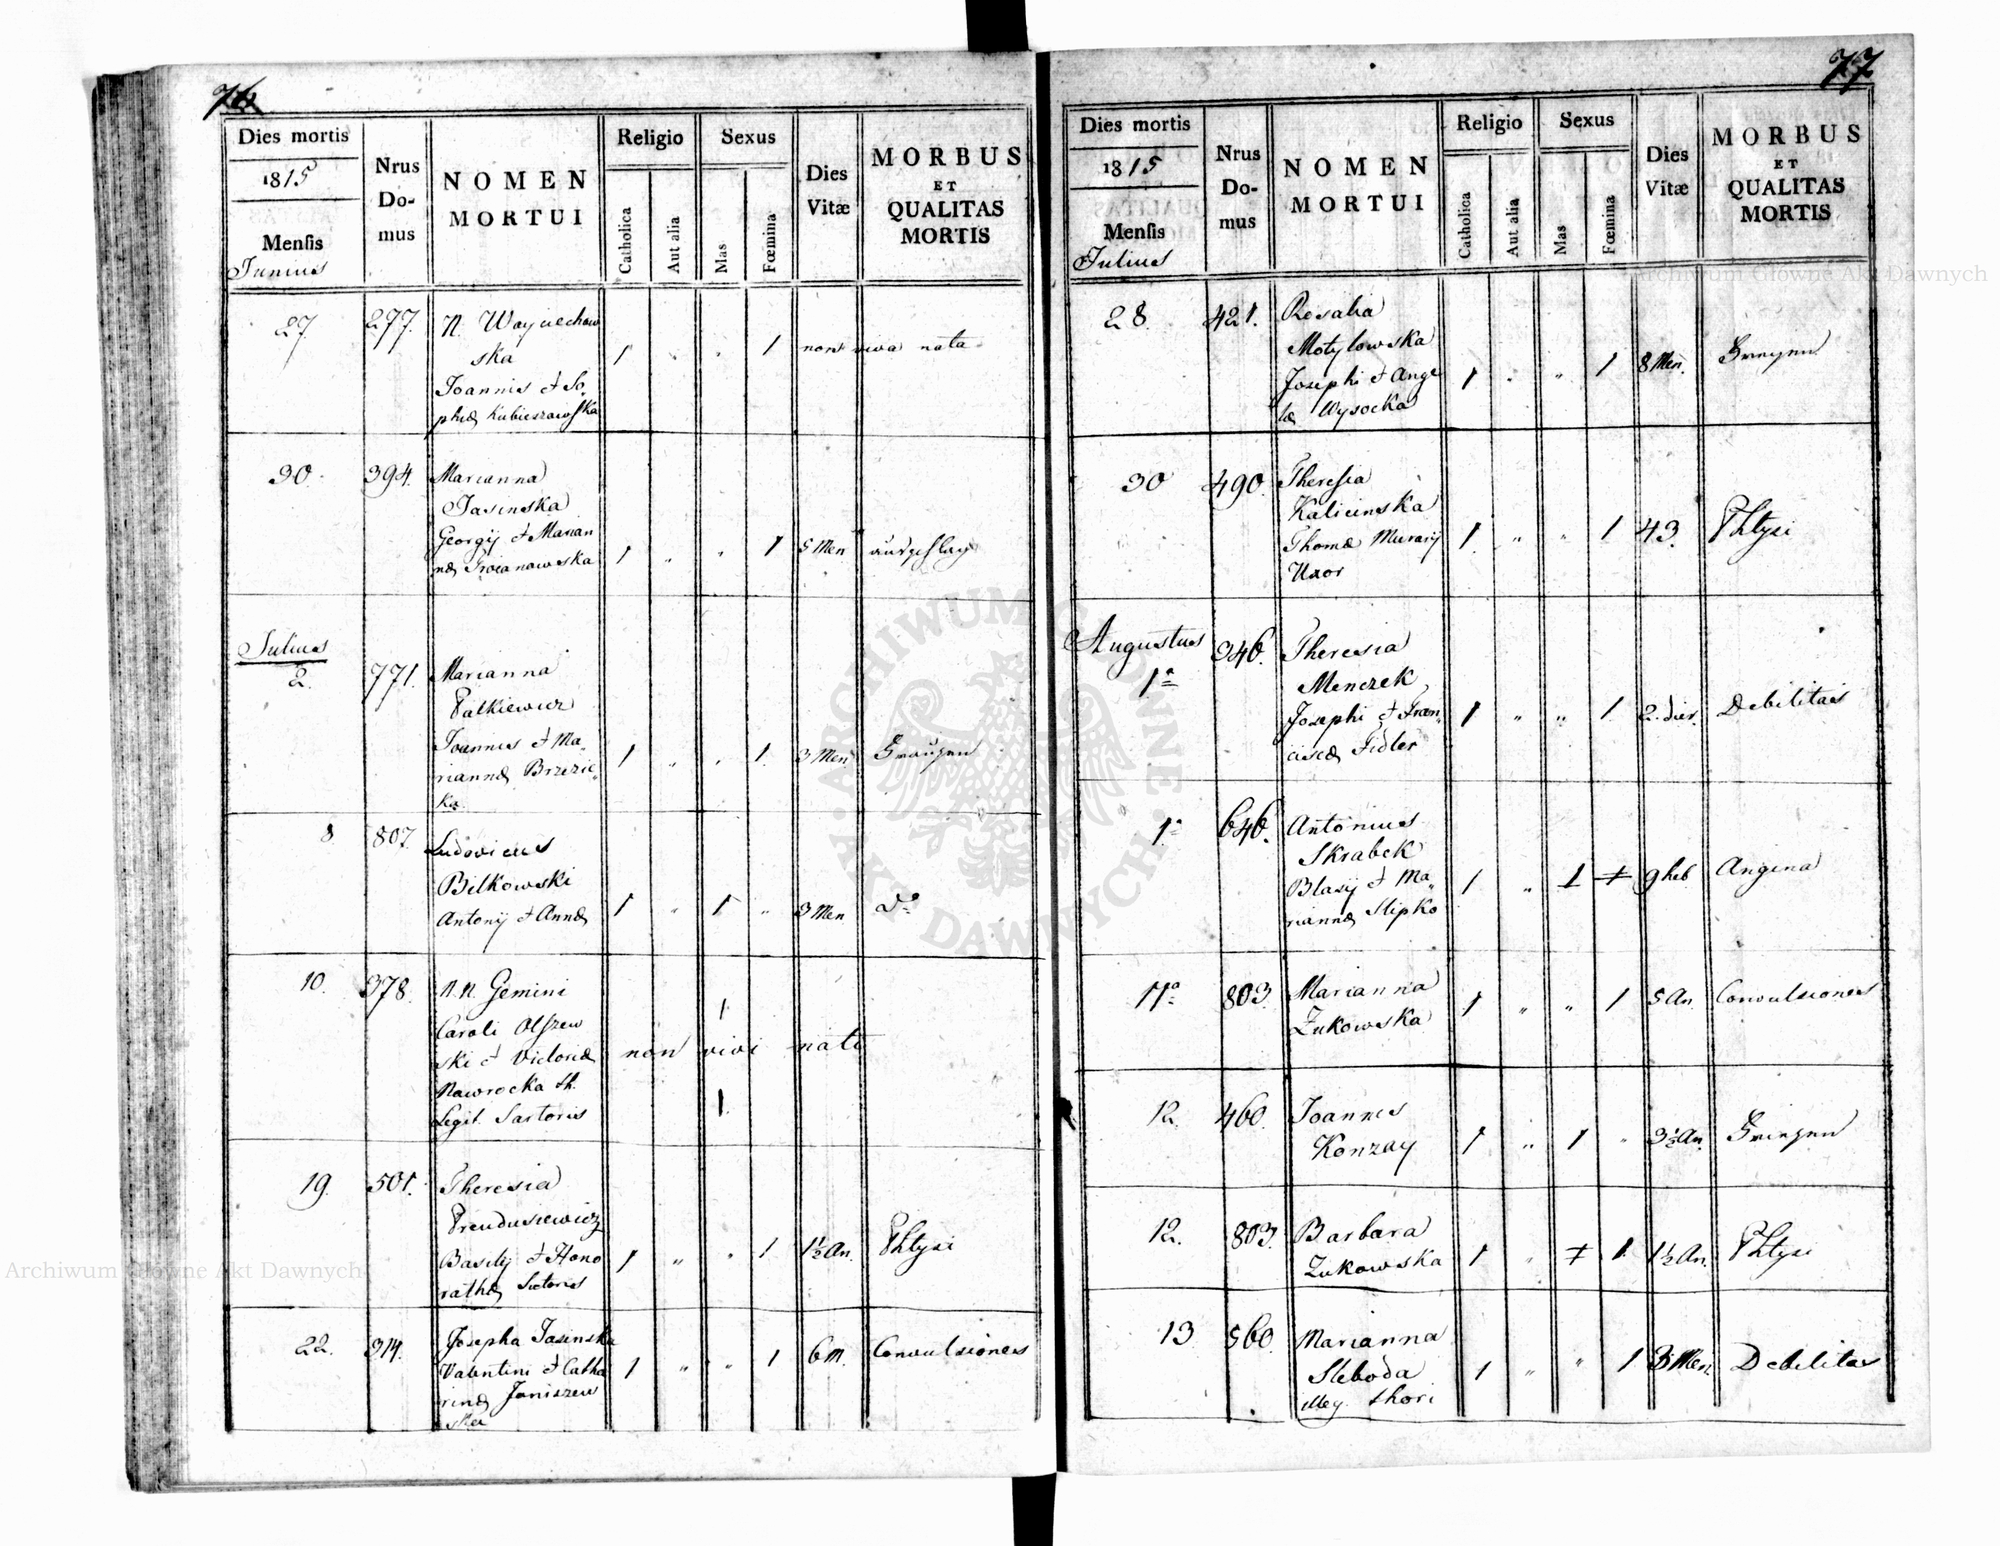 76
Dies mortis
1815
Mensis
Junius
Nrus
Do-
mus
NOMEN
MORTUI
Religio
Catholica
Aut alia
Sexus
Mas
Fœmina
Dies
Vitæ
MORBUS
ET
QUALITAS
MORTIS
27 277. N. Wayciechow
ska
Joannis et So,
phiæ Kubieszowska
1 " " 1 non viva nata
30. 394. Marianna
Jasinska
Georgij et Marian
næ Troianowska
1 " " 1 5 Men ausschlag
Julius
2. 771. Marianna
Palkiewicz
Joannis et Ma,
riannæ Brzezic,
ka.
1 " " 1. 3 Men
8 807 Ludovicus
Bilkowski
Antonij et Annæ
1 " 1 " 3 Men do
10. 378. N.N. Gemini
Caroli Olszew
ski et Victoriæ
Nawrocka th.
Legit. Sartoris
1
non vivi nati
1.
19. 501. Theresia
Prendusiewicz
Basilij et Hono
rathæ Sutoris
1 " " 1 1½ An. Phtysi
22. 314. Josepha Jasinska
Valentini et Catha
rinæ Janiszew
ska
1 " " 1 6 m. Convulsiones
77
Dies mortis
1815
Mensis
Julius
Nrus
Do-
mus
NOMEN
MORTUI
Religio
Catholica
Aut alia
Sexus
Mas
Fœmina
Dies
Vitæ
MORBUS
ET
QUALITAS
MORTIS
28. 421. Rosalia
Motylowska
Josephi et Ange
læ Wysocka
1 " " 1 8 Men.
30 490. Theresia
Kalicinska
Thomæ Murarij
Uxor
1 " " 1 43. Phtysi
Augustus
1a 346. Theresia
Menczek
Josephi et Fran,
ciscæ Fidler
1 " " 1. 2. dier. Debilitas
1a 646. Antonius
Skrabek
Blasij et Ma,
riannæ Slipko
1 " 1 1 9 heb Angina
11a 803. Marianna
Zukowska
1 " " 1 5 An Convulsiones
12. 460. Joannes
Konzay
1 " 1 " 3½ An.
12. 803. Barbara
Zukowska
1 " 1 1. 1½ An. Phtysi
13 560. Marianna
Sleboda
illeg. thori
1 " " 1 3 Men. Debilitas
Archiwum Główne Akt Dawnych
ARCHIWUM GŁÓWNE AKT DAWNYCH
Archiwum Główne Akt Dawnych